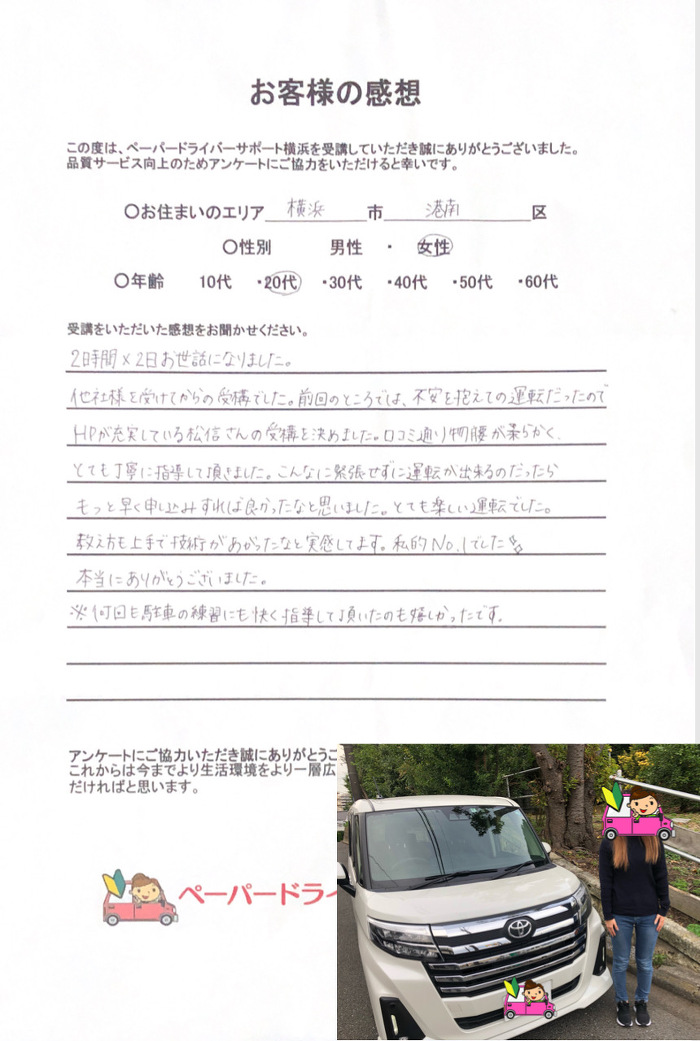 お客様の感想
この度は、ペーパードライバーサポート横浜を受講していただき誠にありがとうございました。
品質サービス向上のためアンケートにご協力をいただけると幸いです。
〇お住まいのエリア 横浜 市 港南 区
〇性別 男性 ・ 女性
〇年齢 10代 ・20代 ・30代 ・40代 ・50代 ・60代
受講をいただいた感想をお聞かせください。
2時間×2日お世話になりました。
他社様を受けてからの受構でした。前回のところでは、不安を抱えての運転だったので
HPが充実している松信さんの受構を決めました。口コミ通り物腰が柔らかく、
とても丁寧に指導して頂きました。こんなに緊張せずに運転が出来るのだったら
もっと早く申し込みすれば良かったなと思いました。とても楽しい運転でした。
教え方も上手で技術があがったなと実感してます。私的No.1でした
本当にありがとうございました。
※何回も駐車の練習にも快く指導して頂いたのも嬉しかったです。
アンケートにご協力いただき誠にありがとうご
これからは今までより生活環境をより一層広
だければと思います。
ペーパードライ